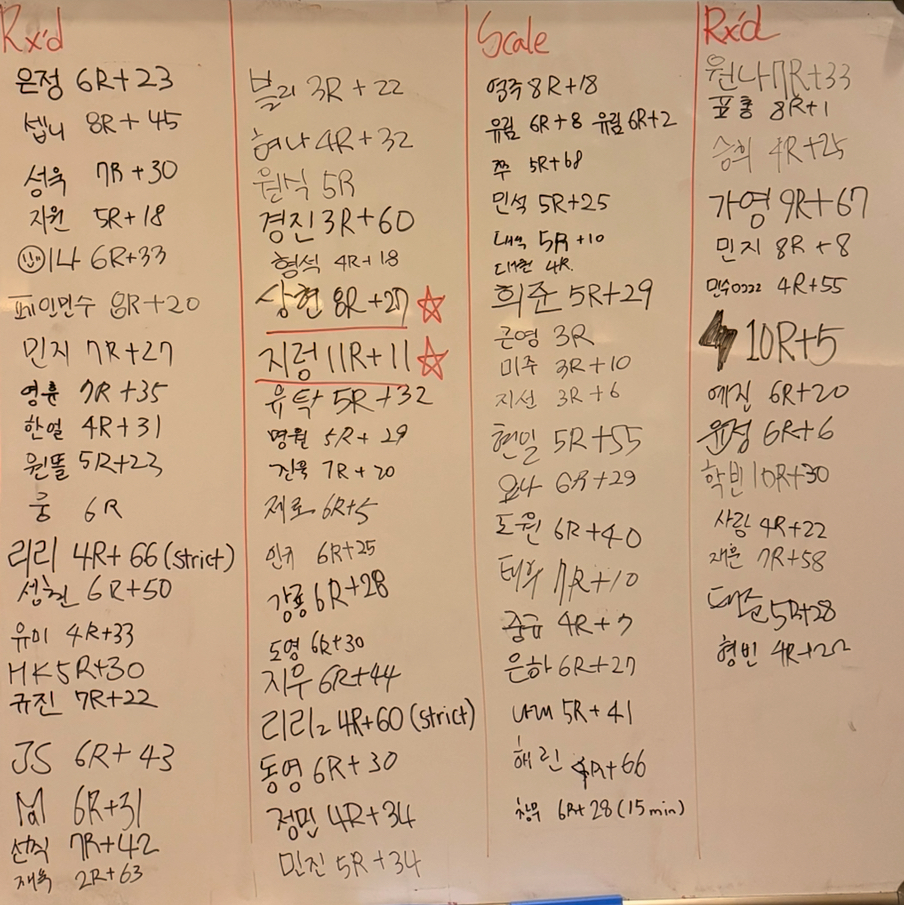 Rx'd
은정 6R+23
셉니 8R+45
성욱 7R+30
지원 5R+18
이나 6R+33
페인민수 8R+20
민지 7R+27
영훈 7R+35
한얼 4R+31
원뜰 5R+23
룽 6R
리리 4R+66 (strict)
성철 6R+50
유미 4R+33
HK 5R+30
규진 7R+22
JS 6R+43
M 6R+31
선식 7R+42
재욱 2R+63
블리 3R+22
혀나 4R+32
원식 5R
경진 3R+60
형석 4R+18
상현 8R+27
지렁 11R+11
유탁 5R+32
명월 5R+29
진욱 7R+20
제로 6R+5
인규 6R+25
강룡 6R+28
도영 6R+30
지우 6R+44
리리2 4R+60 (strict)
동영 6R+30
정민 4R+34
민진 5R+34
Scale
영주 8R+18
유림 6R+8 유림 6R+2
쭈 5R+68
민석 5R+25
5R+10
대현 4R
희준 5R+29
근영 3R
미주 3R+10
지선 3R+6
현일 5R+55
요나 6R+29
도원 6R+40
태우 7R+10
중규 4R+7
은하 6R+27
5R+41
해린 4R+66
창무 6R+28 (15min)
Rx'd
원나 7R+33
표총 8R+1
승희 4R+25
가영 9R+67
민지 8R+8
민수0222 4R+55
10R+5
예진 6R+20
윤정 6R+6
학빈 10R+30
사랑 4R+22
재훈 7R+58
5R+28
형빈 4R+22